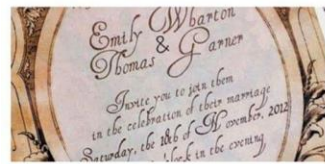 Emily Wharton
&
Thomas Garner
Invite you to join them
in the celebration of their marriage
Saturday, the 10th of November, 2012
in the evening